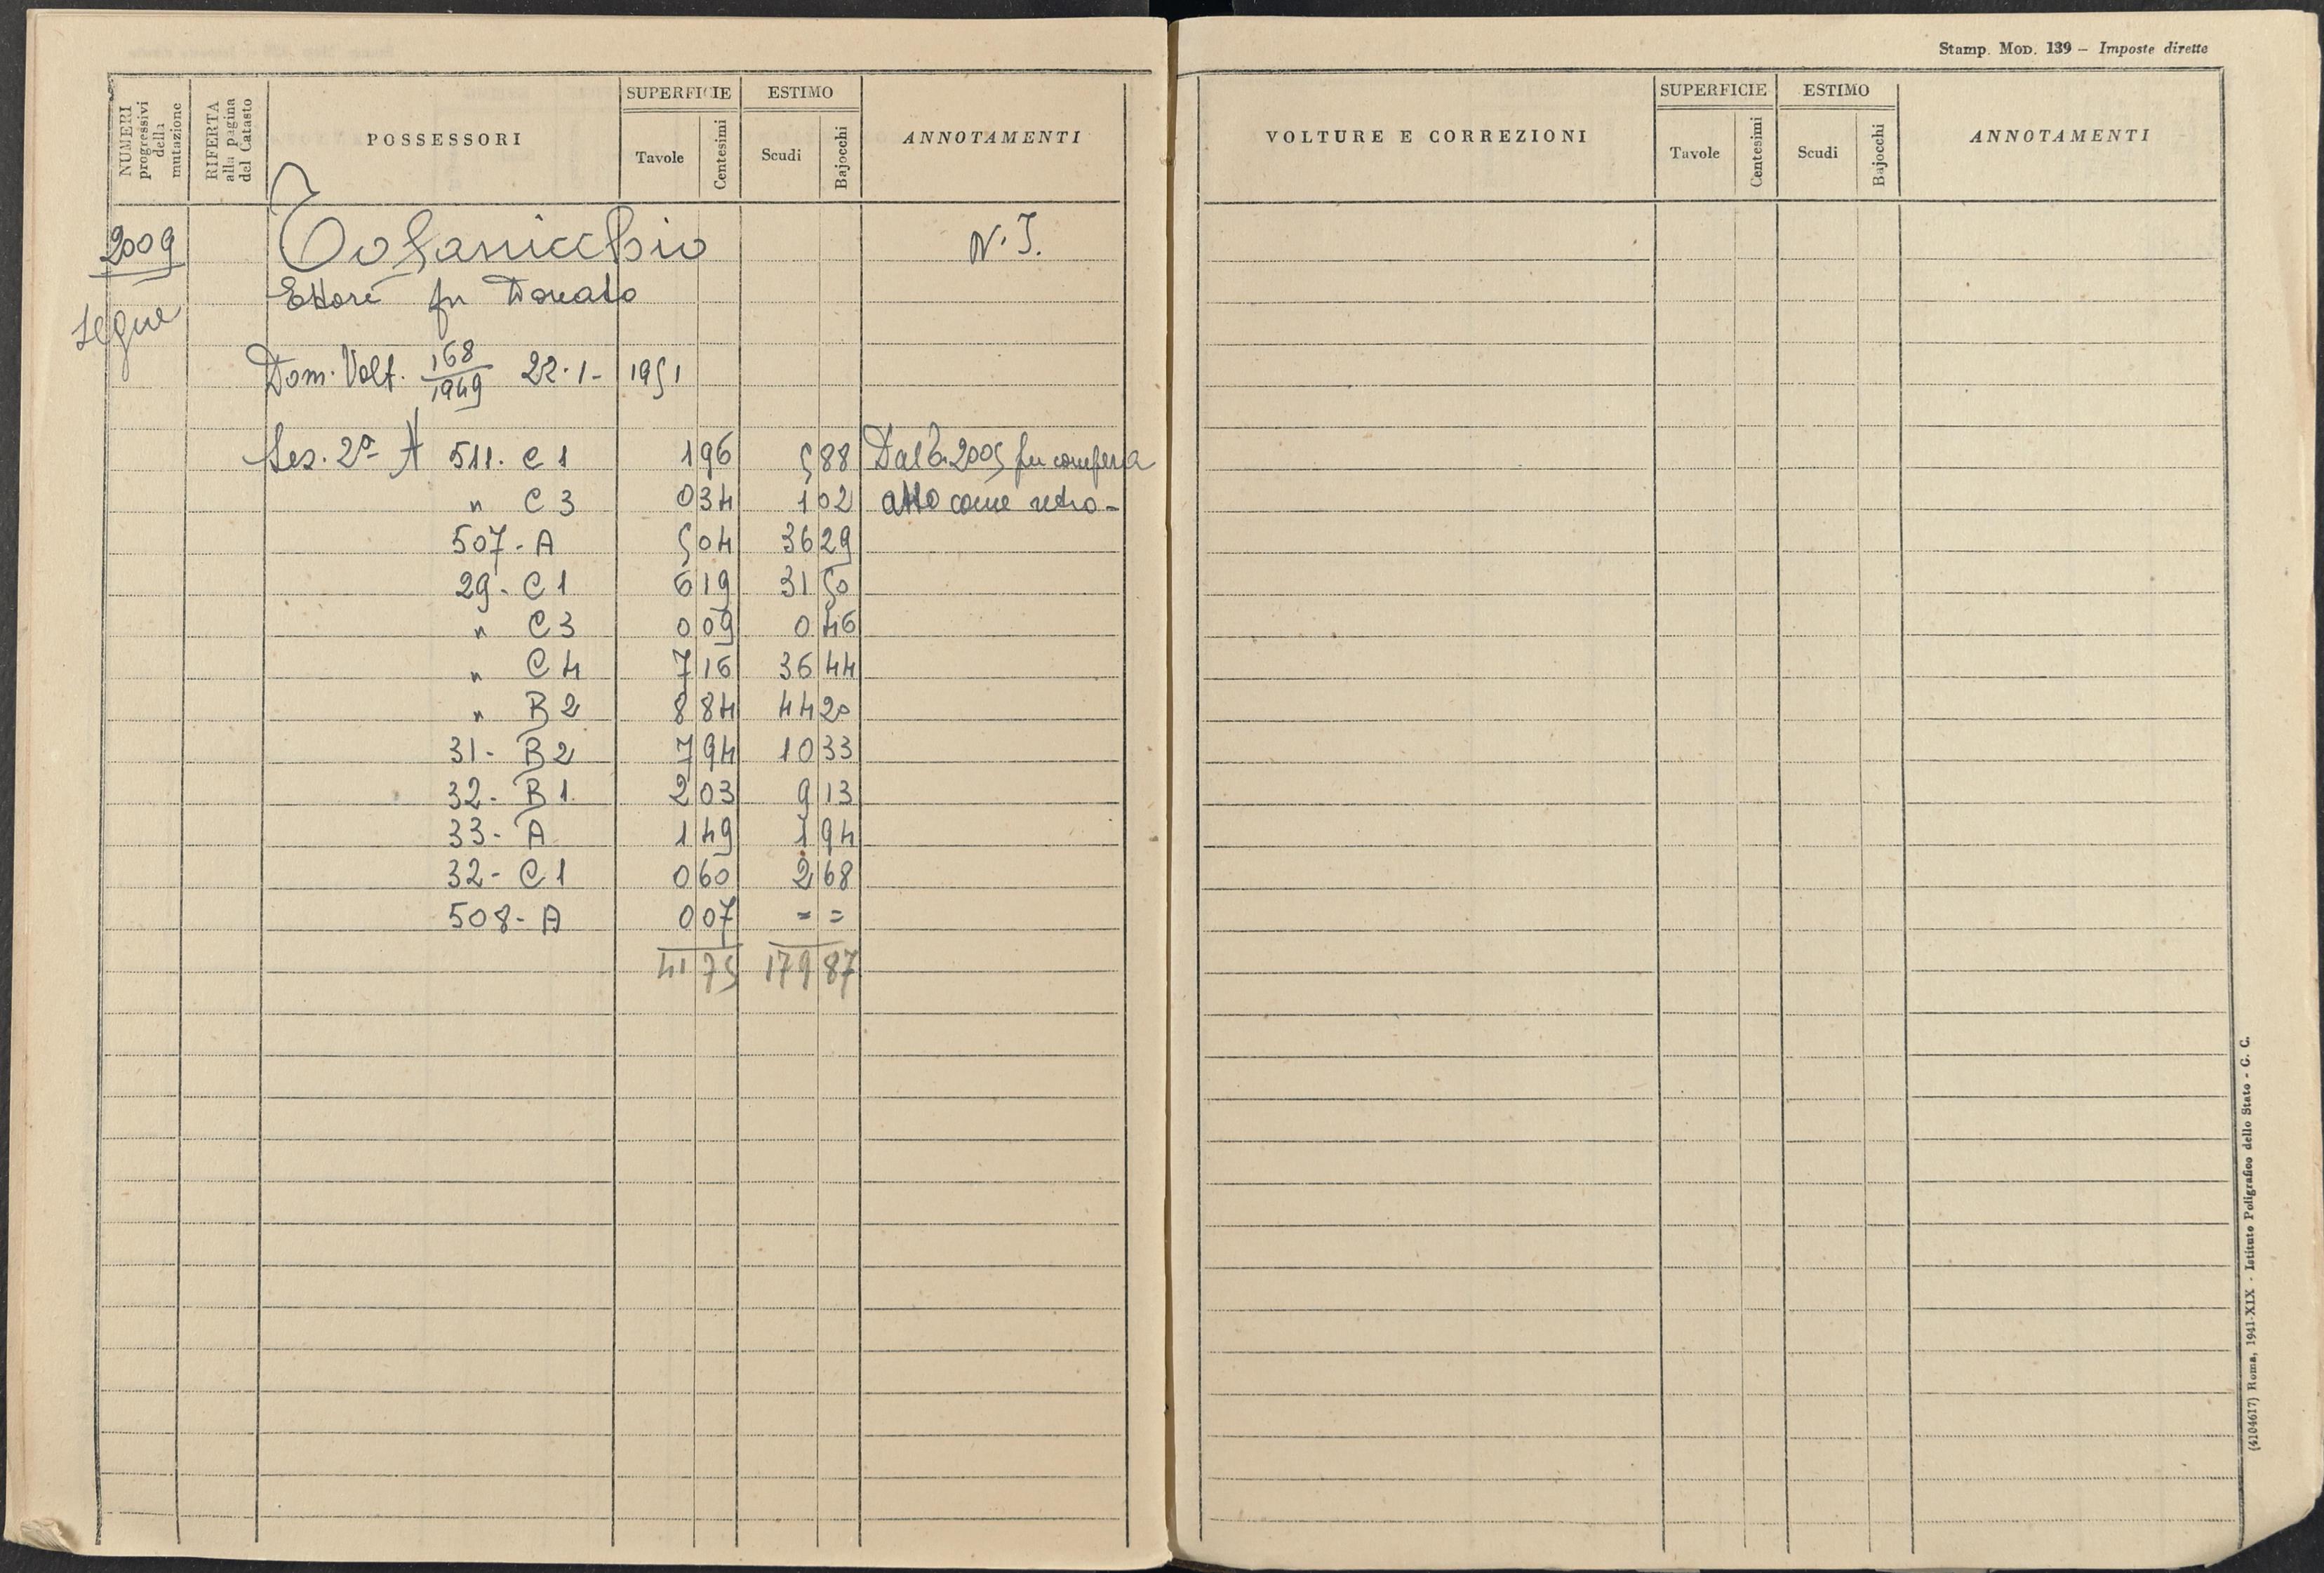 NUMERI progressivi della mutazione
RIFERTA alla pagina del Catasto
POSSESSORI
SUPERFICIE
Tavole
Centesimi
ESTIMO
Scudi
Bajocchi
ANNOTAMENTI
2009
N. I.
Ettore fu Donato
segue
Dom. Volt. 168/1949 22-1-1951
Sez. 2a A 511. C1 1 96 5 88
" C3 0 34 1 02 atto come retro-
507- A 5 04 36 29
29- C1 6 19 31 50
" C3 0 09 0 46
" C4 7 16 36 44
" B2 8 84 44 20
31- B2 7 94 10 33
32- B1 2 03 9 13
33- A 1 49 1 94
32- C1 0 60 2 68
508- A 0 07 = =
41 75 179 87
Stamp. Mod. 139 – Imposte dirette
VOLTURE E CORREZIONI
SUPERFICIE
Tavole
Centesimi
ESTIMO
Scudi
Bajocchi
ANNOTAMENTI
(4104617) Roma, 1941-XIX - Istituto Poligrafico dello Stato - G. C.